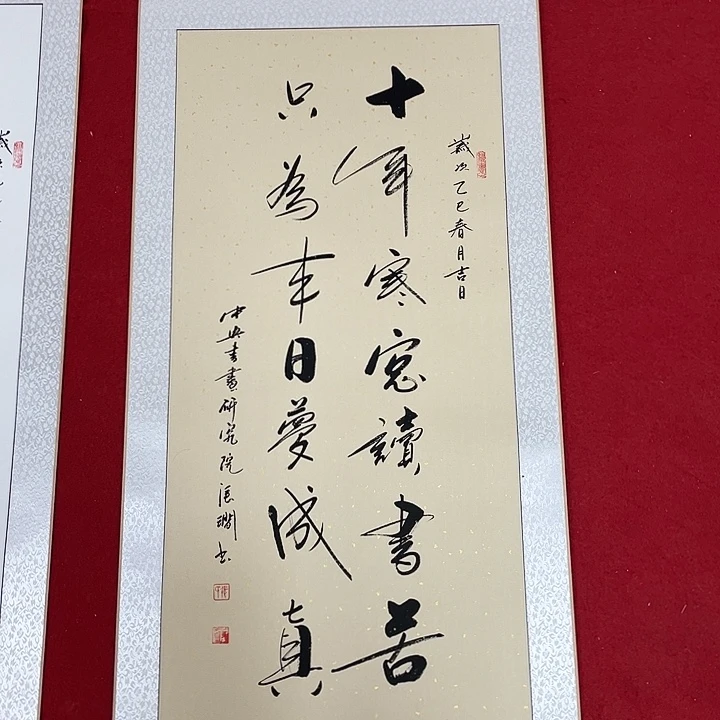 歲次乙巳春月吉日
十年寒窓讀書苦
只為来日夢成真
中央書畫研究院